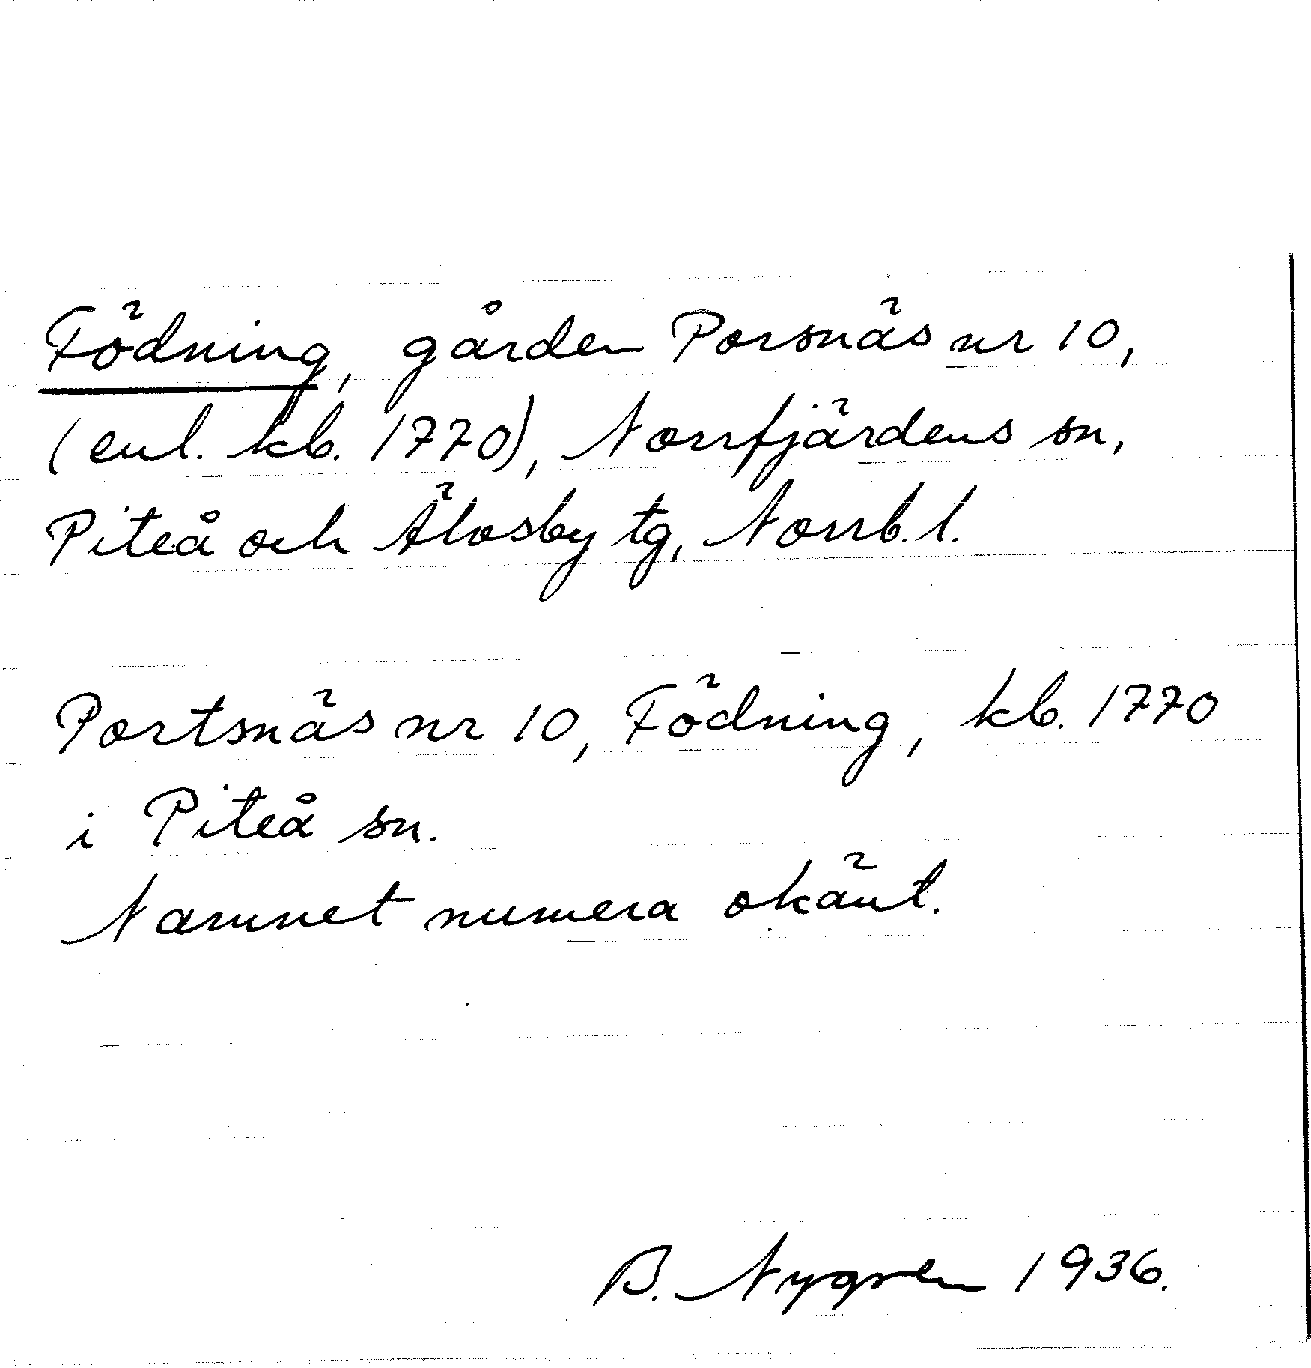 Födning, gården Porsnäs nr 10,
(enl. kb. 1770), Norrfjärdens sn,
Piteå och Älvsby tg, Norrb. l.
Portsnäs nr 10, Födning, kb. 1770
i Piteå sn.
Namnet numera okänt.
B. Nygren 1936.